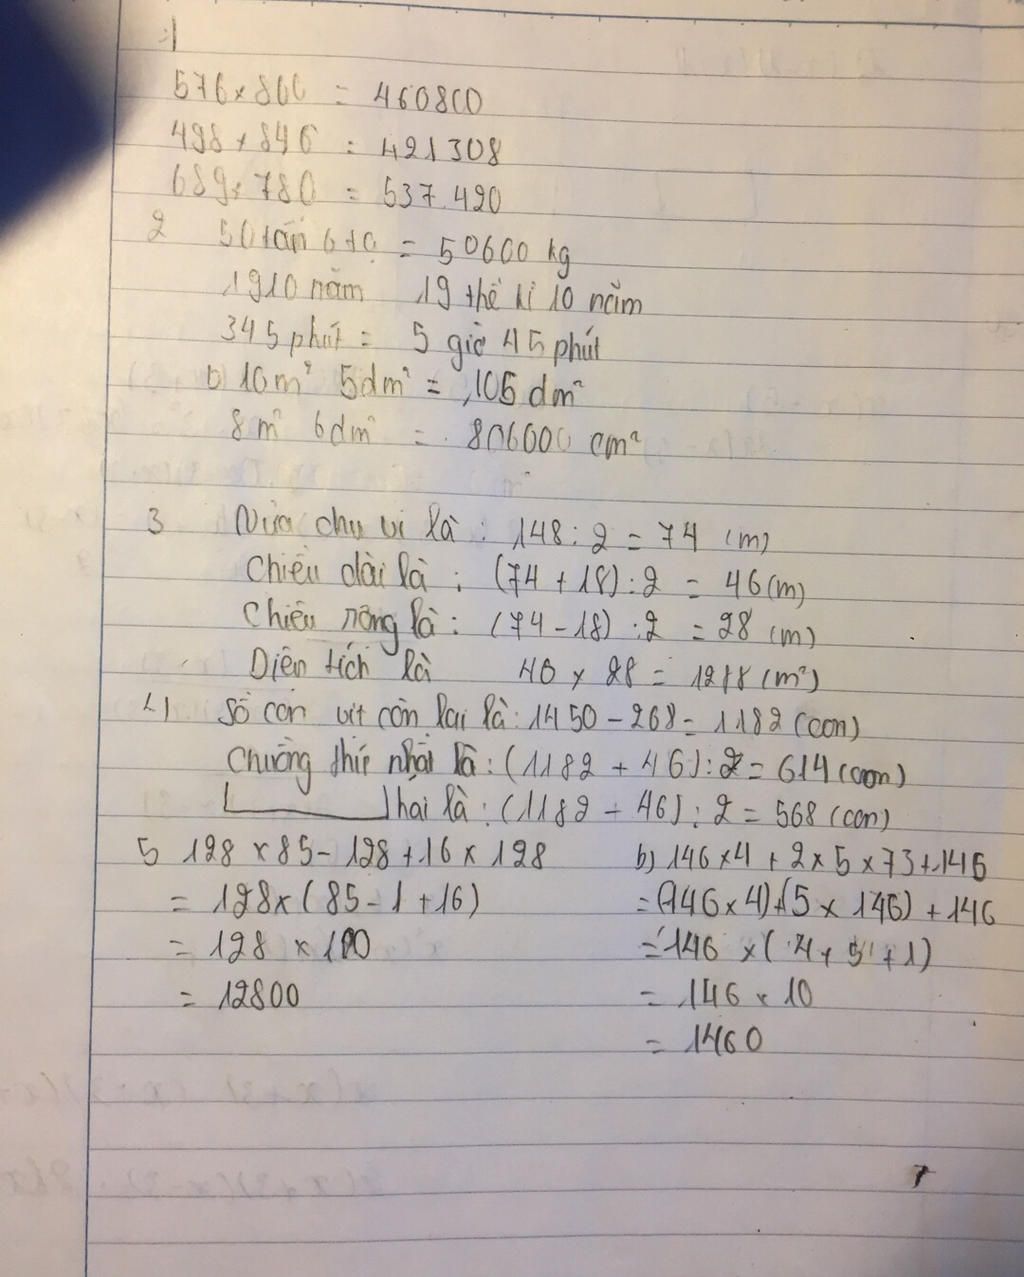 1
576 x 800 = 460800
498 x 846 = 421308
689 x 780 = 537.420
2 50 tấn 6 tạ = 50600 kg
1910 năm 19 thế kỉ 10 năm
345 phút = 5 giờ 45 phút
b) 10m² 5dm² = 105 dm²
8 m² 6dm² = 806000 cm²
3 Nửa chu vi là : 148 : 2 = 74 (m)
Chiều dài là : (74 + 18) : 2 = 46 (m)
Chiều rộng là : (74 - 18) : 2 = 28 (m)
Diện tích là 46 x 28 = 1288 (m²)
4) Số con vịt còn lại là : 1450 - 268 = 1182 (con)
Chuồng thứ nhất là : (1182 + 46) : 2 = 614 (con)
hai là : (1182 - 46) : 2 = 568 (con)
5 128 x 85 - 128 + 16 x 128 b) 146 x 4 + 2 x 5 x 73 + 146
= 128 x (85 - 1 + 16) = (146 x 4) + (5 x 146) + 146
= 128 x 100 = 146 x (4 + 5 + 1)
= 12800 = 146 x 10
= 1460